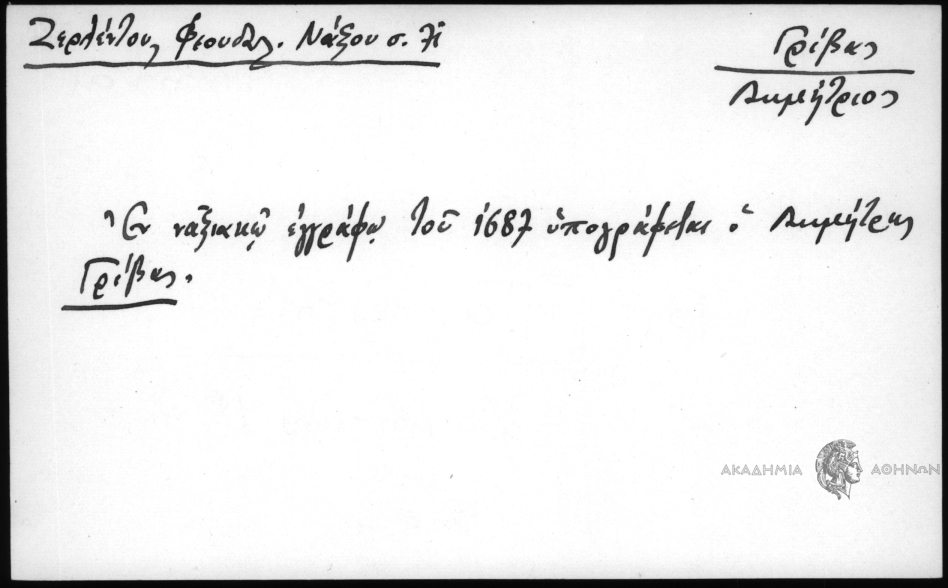 Ζερλέντου, Φεουδαλ. Νάξου σ.
Γρίβας
Δημήτριος
Ἐν ναξιακῷ ἐγγράφῳ τοῦ 1687 ὑπογράφεται ὁ Δημήτρης
Γρίβας.
ΑΚΑΔΗΜΙΑ ΑΘΗΝΩΝ